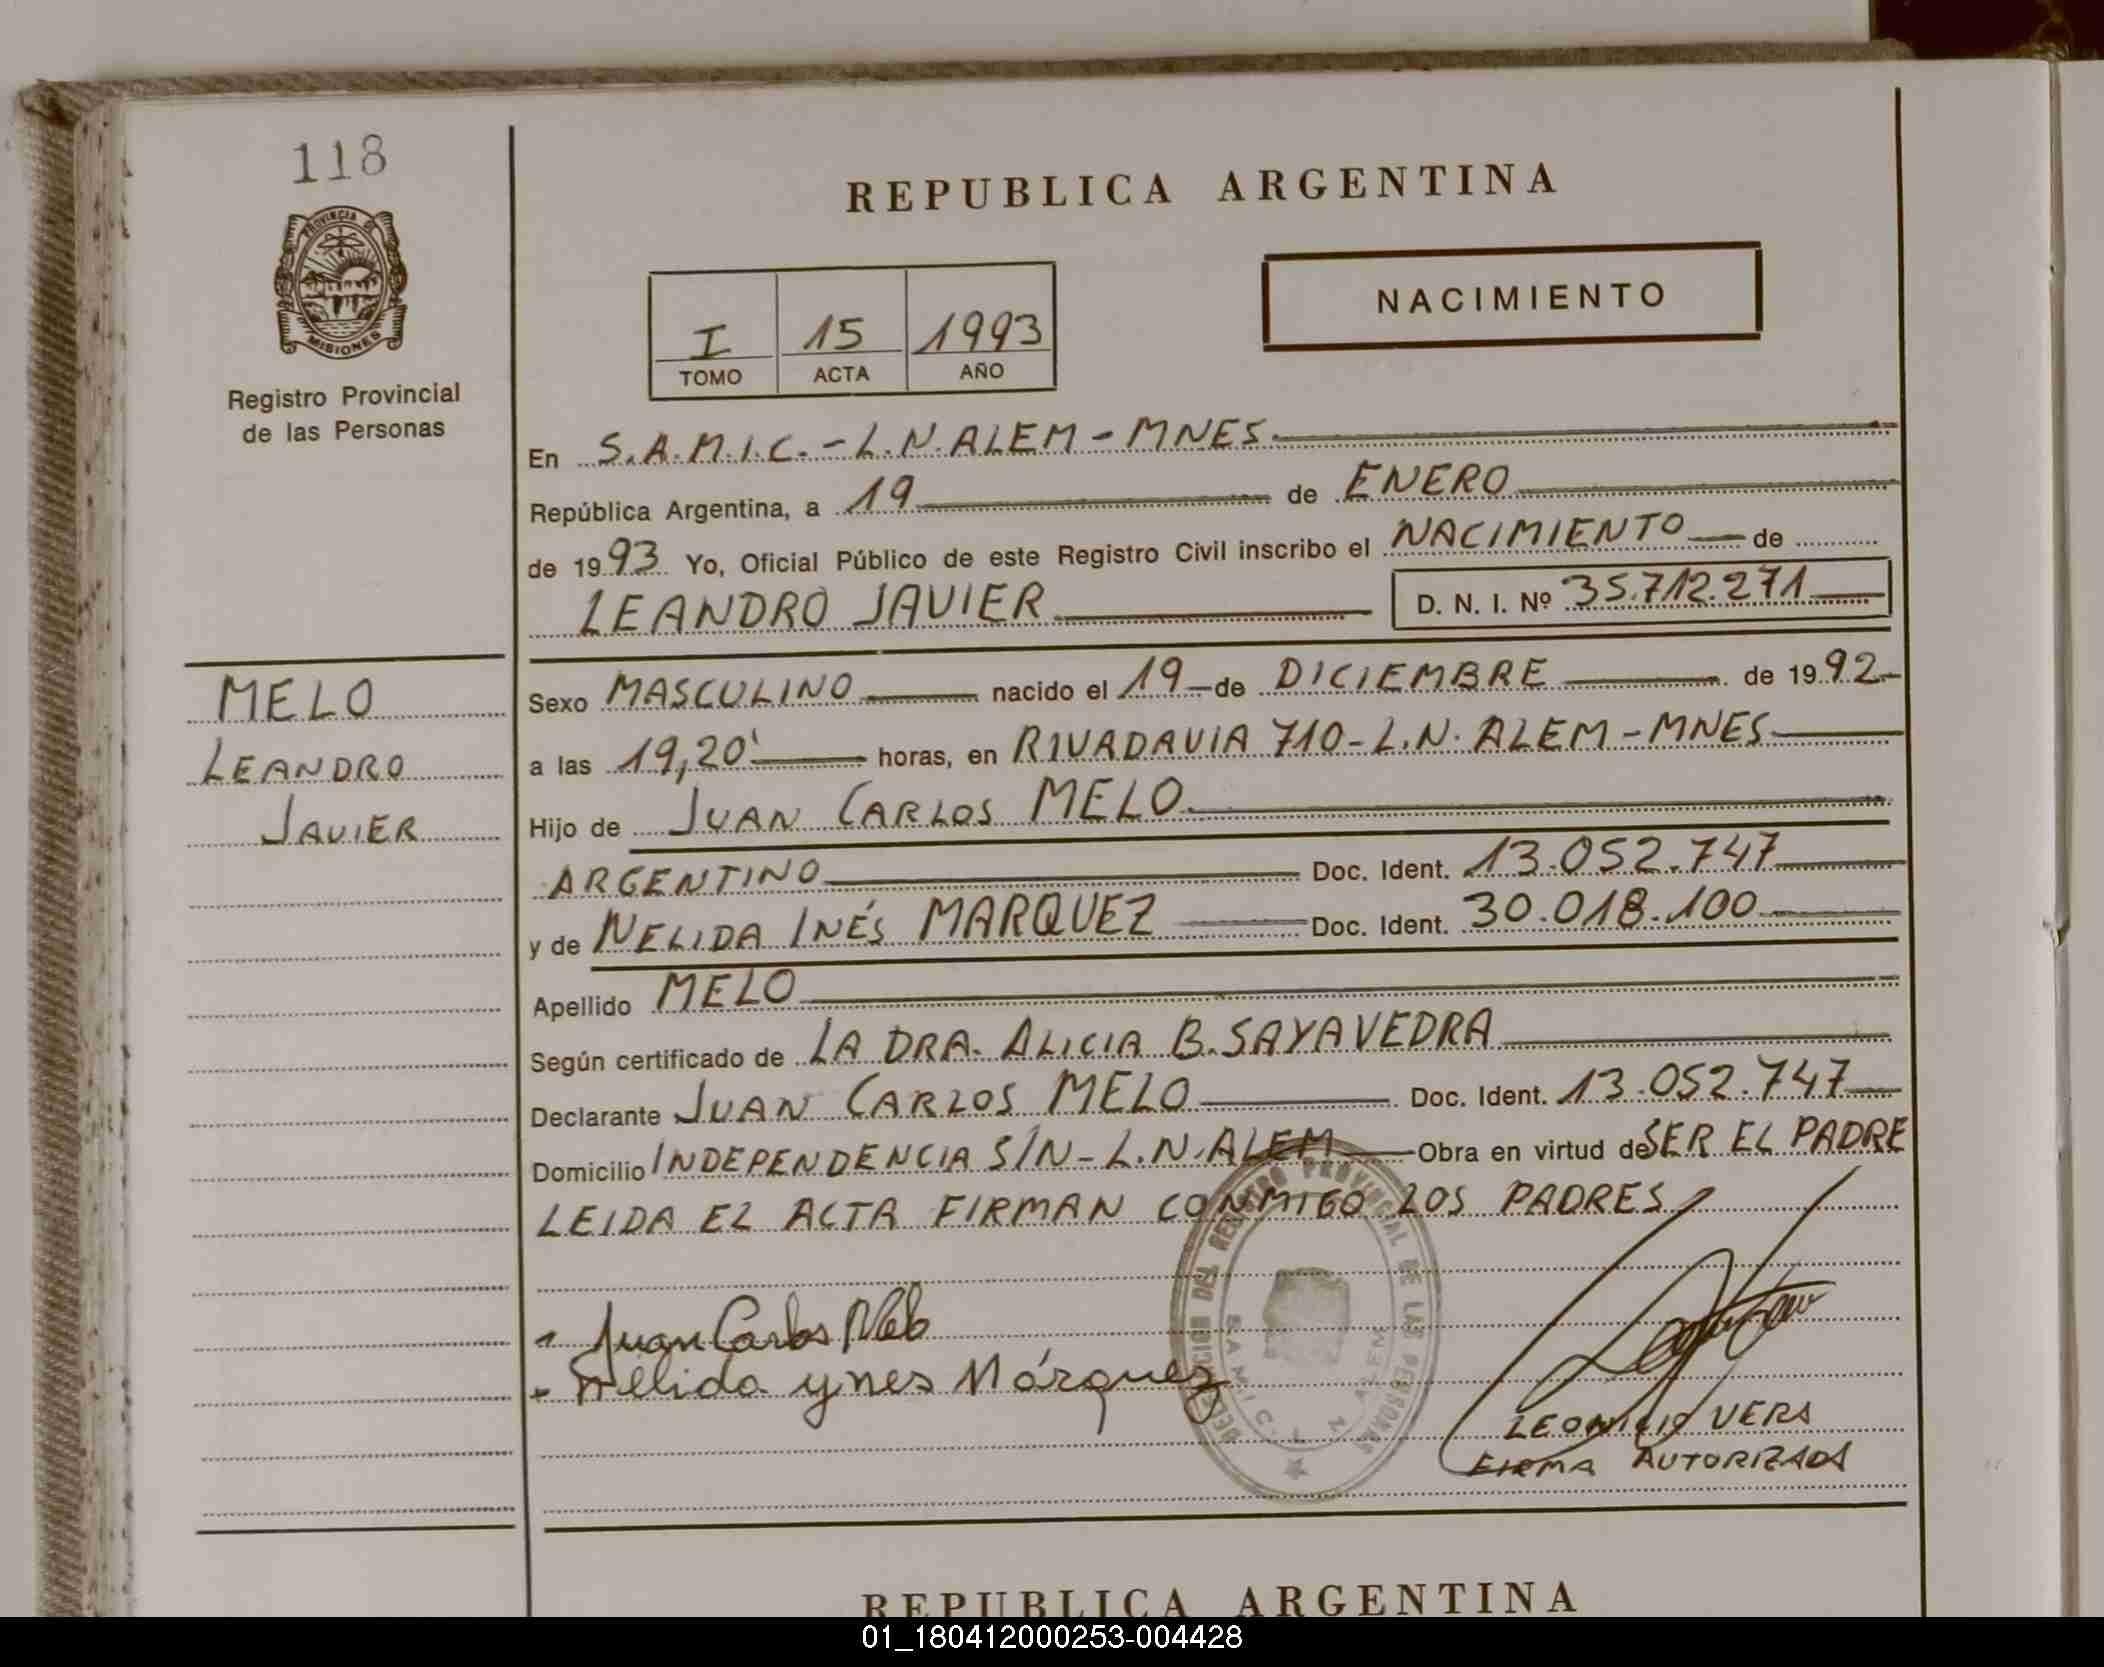 118
PROVINCIA DE
MISIONES
Registro Provincial
de las Personas
REPUBLICA ARGENTINA
NACIMIENTO
I 15 1993
TOMO ACTA AÑO
En S.A.M.I.C.-L.N.ALEM-MNES.
República Argentina, a 19 de ENERO
de 1993 Yo, Oficial Público de este Registro Civil inscribo el NACIMIENTO de
LEANDRO JAVIER D. N. I. Nº 35.712.271
MELO
LEANDRO
JAVIER
Sexo MASCULINO nacido el 19 de DICIEMBRE de 1992
a las 19,20' horas, en RIVADAVIA 710-L.N. ALEM-MNES
Hijo de JUAN CARLOS MELO
ARGENTINO Doc. Ident. 13.052.747
y de NELIDA INÉS MARQUEZ Doc. Ident. 30.018.100
Apellido MELO
Según certificado de LA DRA. ALICIA B. SAYAVEDRA
Declarante JUAN CARLOS MELO Doc. Ident. 13.052.747
Domicilio INDEPENDENCIA S/N-L.N.ALEM Obra en virtud de SER EL PADRE
LEIDA EL ACTA FIRMAN CONMIGO LOS PADRES
Juan Carlos Melo
Nelida ynes Márquez
DELEGACION DEL REGISTRO PROVINCIAL DE LAS PERSONAS
S.A.M.I.C. L N ALEM
LEONICIO VERA
FIRMA AUTORIZADA
REPUBLICA ARGENTINA
01_180412000253-004428